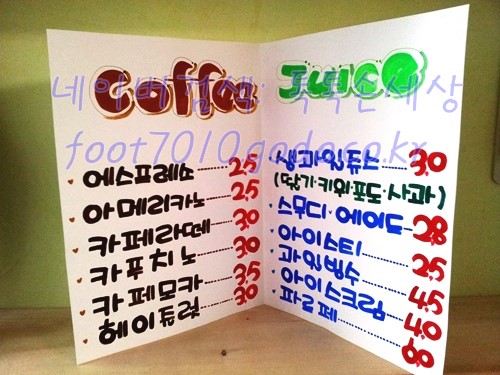 Coffee
에스프레소 25
아메리카노 25
카페라떼 30
카푸치노 30
카페모카 35
헤이즐럿 30
Juice
생과일쥬스 30
(딸기·키위·포도·사과)
스무디·에이드 28
아이스티 25
과일빙수 45
아이스크림 40
파르페
네이버검색: 톡톡손세상
foot7010.godo.co.kr